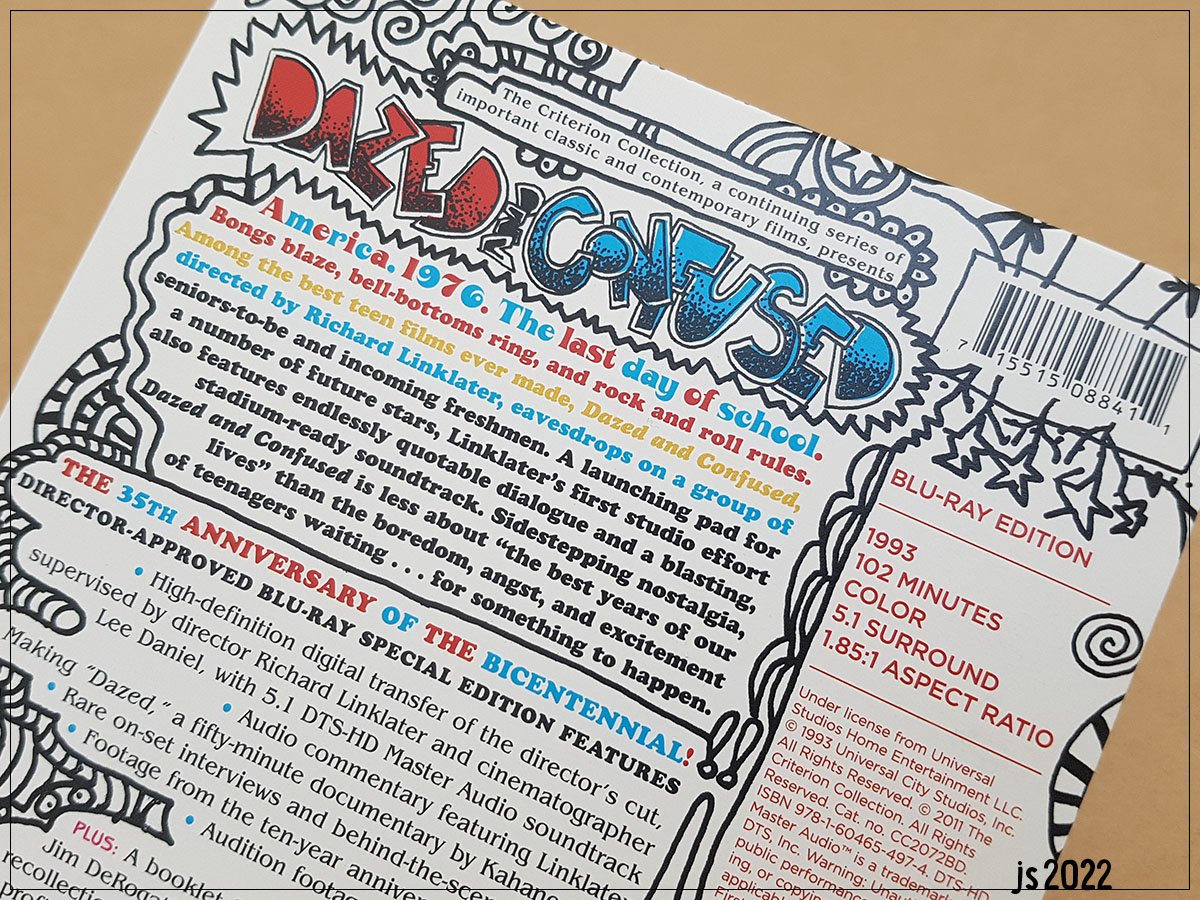 The Criterion Collection, a continuing series of
important classic and contemporary films, presents
DAZED
AND
CONFUSED
America. 1976. The last day of school.
Bongs blaze, bell-bottoms ring, and rock and roll rules.
Among the best teen films ever made, Dazed and Confused,
directed by Richard Linklater, eavesdrops on a group of
seniors-to-be and incoming freshmen. A launching pad for
a number of future stars, Linklater's first studio effort
also features endlessly quotable dialogue and a blasting,
stadium-ready soundtrack. Sidestepping nostalgia,
Dazed and Confused is less about "the best years of our
lives" than the boredom, angst, and excitement
of teenagers waiting . . . for something to happen.
THE 35TH ANNIVERSARY OF THE BICENTENNIAL!
DIRECTOR-APPROVED BLU-RAY SPECIAL EDITION FEATURES
• High-definition digital transfer of the director's cut,
supervised by director Richard Linklater and cinematographer
Lee Daniel, with 5.1 DTS-HD Master Audio soundtrack
• Audio commentary featuring Linklater
Making "Dazed," a fifty-minute documentary by Kahane
• Rare on-set interviews and behind-the-scen
• Footage from the ten-year annivers
• Audition footag
PLUS: A booklet
Jim DeRogat
recollection
prof
7 15515 08841 1
BLU-RAY EDITION
1993
102 MINUTES
COLOR
5.1 SURROUND
1.85:1 ASPECT RATIO
Under license from Universal
Studios Home Entertainment LLC.
© 1993 Universal City Studios, Inc.
All Rights Reserved. © 2011 The
Criterion Collection. All Rights
Reserved. Cat. no. CC2072BD.
ISBN 978-1-60465-497-4. DTS-HD
Master Audio™ is a trademark
DTS, Inc. Warning: Unaut
public performance
ing, or copyin
applicab
First
js 2022